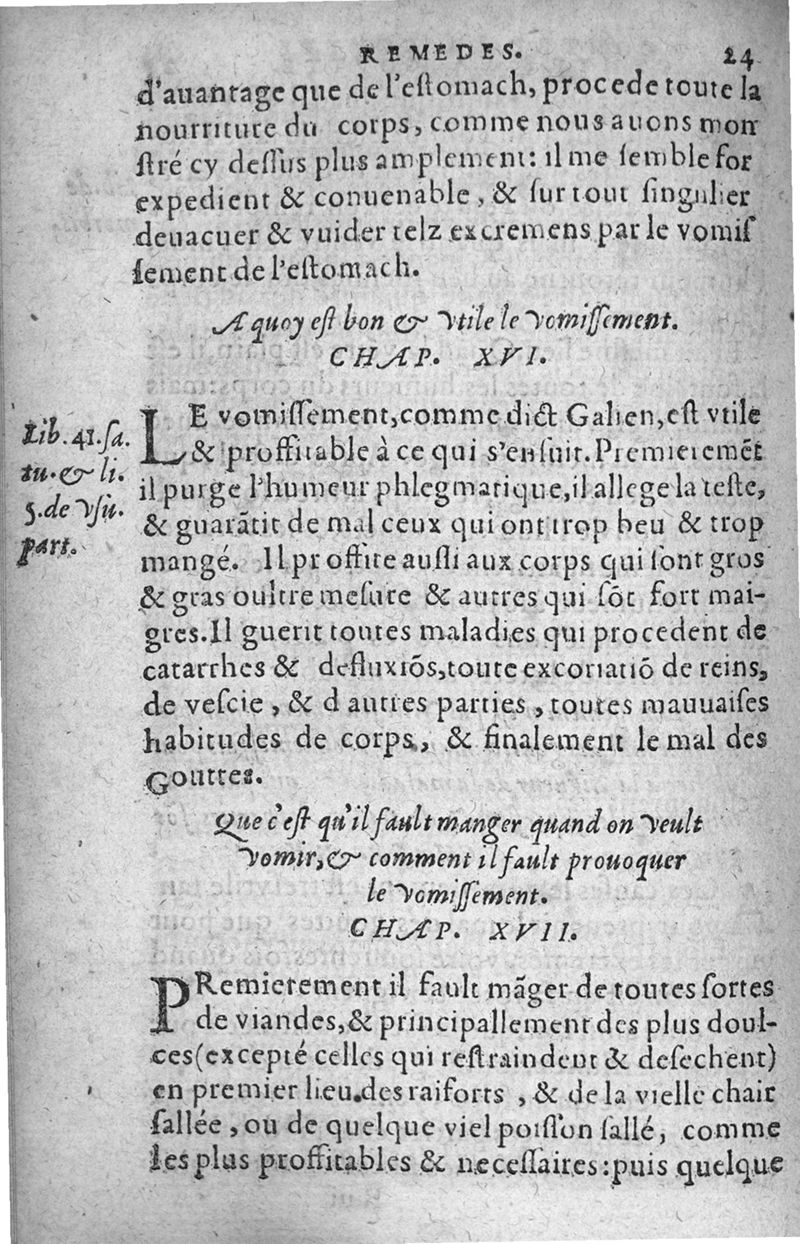 REMEDES. 24
d'auantage que de l'estomach, procede toute la
nourriture du corps, comme nous auons mon
stré cy dessus plus amplement: il me semble for
expedient & conuenable, & sur tout singulier
deuacuer & vuider telz excremens par le vomis
sement de l'estomach.
A quoy est bon & vtile le vomissement.
CHAP. XVI.
Lib. 41. sa.
tu. & li.
5. de vsu.
part.
LE vomissement, comme dict Galien, est vtile
& proffitable à ce qui s'ensuit. Premieremẽt
il purge l'humeur phlegmatique, il allege la teste,
& guarãtit de mal ceux qui ont trop beu & trop
mangé. Il proffite aussi aux corps qui sont gros
& gras oultre mesure & autres qui sõt fort mai-
gres. Il guerit toutes maladies qui procedent de
catarrhes & defluxiõs, toute excoriatiõ de reins,
de vescie, & d autres parties, toutes mauuaises
habitudes de corps, & finalement le mal des
Gouttes.
Que c'est qu'il fault manger quand on veult
vomir, & comment il fault prouoquer
le vomissement.
CHAP. XVII.
PRemierement il fault mãger de toutes sortes
de viandes, & principallement des plus doul-
ces (excepté celles qui restraindent & desechent)
en premier lieu. des raiforts, & de la vielle chair
sallée, ou de quelque viel poisson sallé, comme
les plus proffitables & necessaires: puis quelque